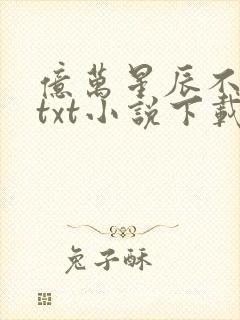 億萬星辰不
txt小說下載
兔子酥